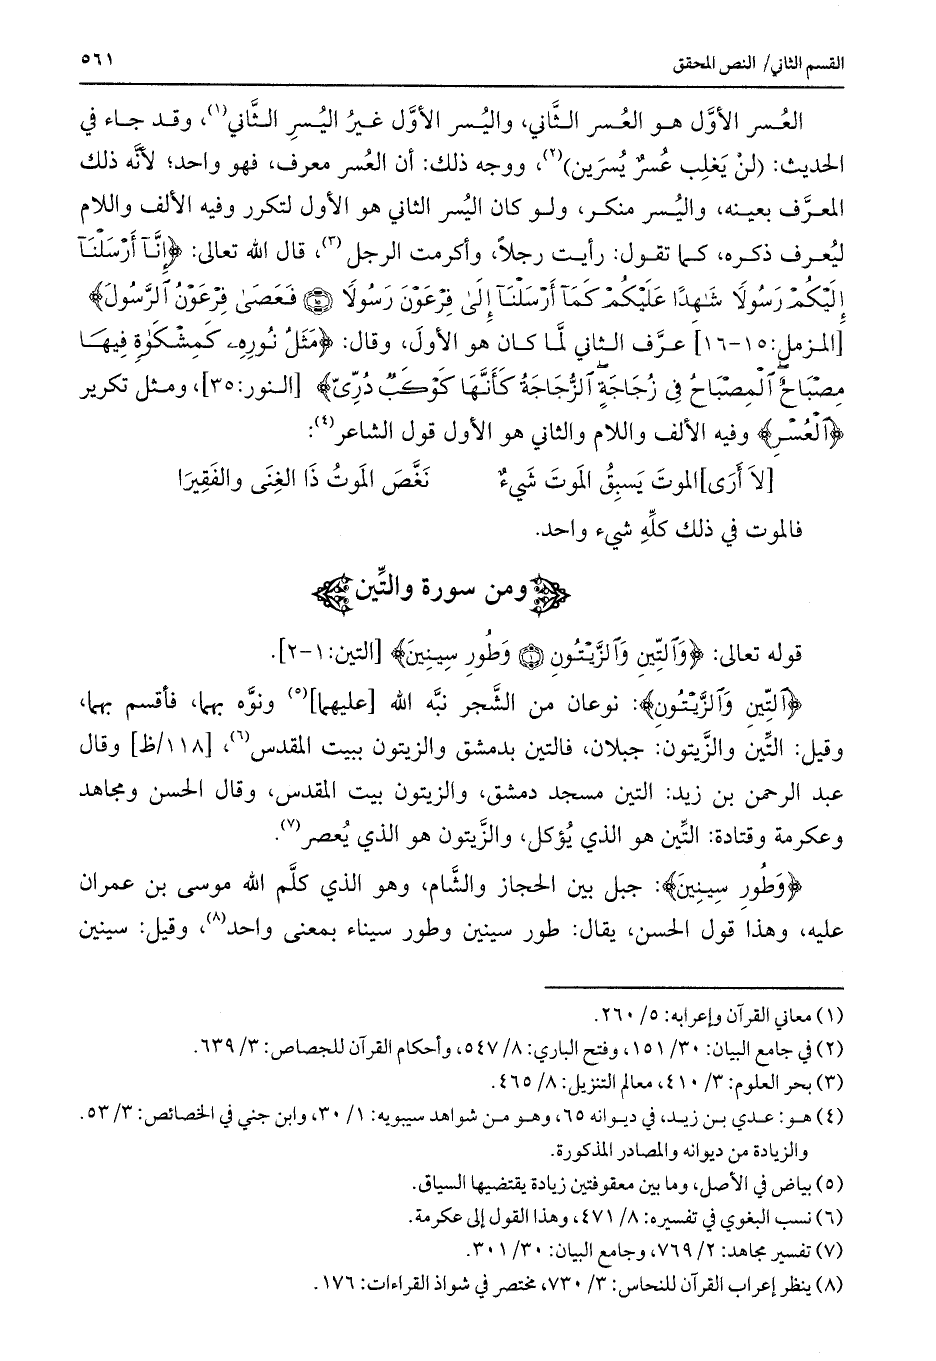 القسم الثاني/ النص المحقق ٥٦١
العُسر الأوَّل هـو العُسر الـثَّاني، واليُـسر الأوَّل غـيرُ اليُـسرِ الـثَّاني(١)، وقـد جـاء في
الحديث: (لنْ يَغلِب عُسرٌ يُسرَين)(٢)، ووجه ذلك: أن العُسر معرف، فهو واحد؛ لأنَّه ذلك
المعـرَّف بعينـه، واليُـسر منكـر، ولـو كان اليُسر الثاني هو الأول لتكرر وفيه الألف واللام
ليُعـرف ذكـره، كـما تقـول: رأيـت رجـلاً، وأكرمـت الرجـل(٣)، قال الله تعالى: ﴿إِنَّآ أَرْسَلْنَآ
إِلَيْكُمْ رَسُولًا شَـٰهِدًا عَلَيْكُمْ كَمَآ أَرْسَلْنَآ إِلَىٰ فِرْعَوْنَ رَسُولًا ۝١٥ فَعَصَىٰ فِرْعَوْنُ ٱلرَّسُولَ﴾
[المـزمل:١٥-١٦] عـرَّف الـثاني لمَّا كـان هـو الأولَ، وقال: ﴿مَثَلُ نُورِهِۦ كَمِشْكَوٰةٍ فِيهَا
مِصْبَاحٌ ۖ ٱلْمِصْبَاحُ فِى زُجَاجَةٍ ۖ ٱلزُّجَاجَةُ كَأَنَّهَا كَوْكَبٌ دُرِّىٌّ﴾ [الـنور:٣٥]، ومـثل تكرير
﴿ٱلْعُسْرِ﴾ وفيه الألف واللام والثاني هو الأول قول الشاعر(٤):
[لاَ أَرَى]الموتَ يَسبِقُ الموتَ شَيءٌ نَغَّصَ الموتُ ذَا الغِنَى والفَقِيرَا
فالموت في ذلك كلِّهِ شيء واحد.
ومن سورة والتِّين
قوله تعالى: ﴿وَٱلتِّينِ وَٱلزَّيْتُونِ ۝١ وَطُورِ سِينِينَ﴾ [التين:١-٢].
﴿ٱلتِّينِ وَٱلزَّيْتُونِ﴾: نوعان من الشَّجر نبَّه الله [عليهما](٥) ونوَّه بهما، فأقسم بهما،
وقيل: التِّين والزَّيتون: جبلان، فالتين بدمشق والزيتون ببيت المقدس(٦)، [١١٨/ظ] وقال
عبد الرحمن بن زيد: التين مسجد دمشق، والزيتون بيت المقدس، وقال الحسن ومجاهد
وعكرمة وقتادة: التِّين هو الذي يُؤكل، والزَّيتون هو الذي يُعصر(٧).
﴿وَطُورِ سِينِينَ﴾: جبل بين الحجاز والشَّام، وهو الذي كلَّم الله موسى بن عمران
عليه، وهذا قول الحسن، يقال: طور سينين وطور سيناء بمعنى واحد(٨)، وقيل: سينين
(١) معاني القرآن وإعرابه: ٥/ ٢٦٠.
(٢) في جامع البيان: ٣٠/ ١٥١، وفتح الباري: ٨/ ٥٤٧، وأحكام القرآن للجصاص: ٣/ ٦٣٩.
(٣) بحر العلوم: ٣/ ٤١٠، معالم التنزيل: ٨/ ٤٦٥.
(٤) هـو: عـدي بـن زيـد، في ديـوانه ٦٥، وهـو مـن شواهد سيبويه: ١/ ٣٠، وابن جني في الخصائص: ٣/ ٥٣.
والزيادة من ديوانه والمصادر المذكورة.
(٥) بياض في الأصل، وما بين معقوفتين زيادة يقتضيها السياق.
(٦) نسب البغوي في تفسيره: ٨/ ٤٧١، وهذا القول إلى عكرمة.
(٧) تفسير مجاهد: ٢/ ٧٦٩، وجامع البيان: ٣٠/ ٣٠١.
(٨) ينظر إعراب القرآن للنحاس: ٣/ ٧٣٠، مختصر في شواذ القراءات: ١٧٦.